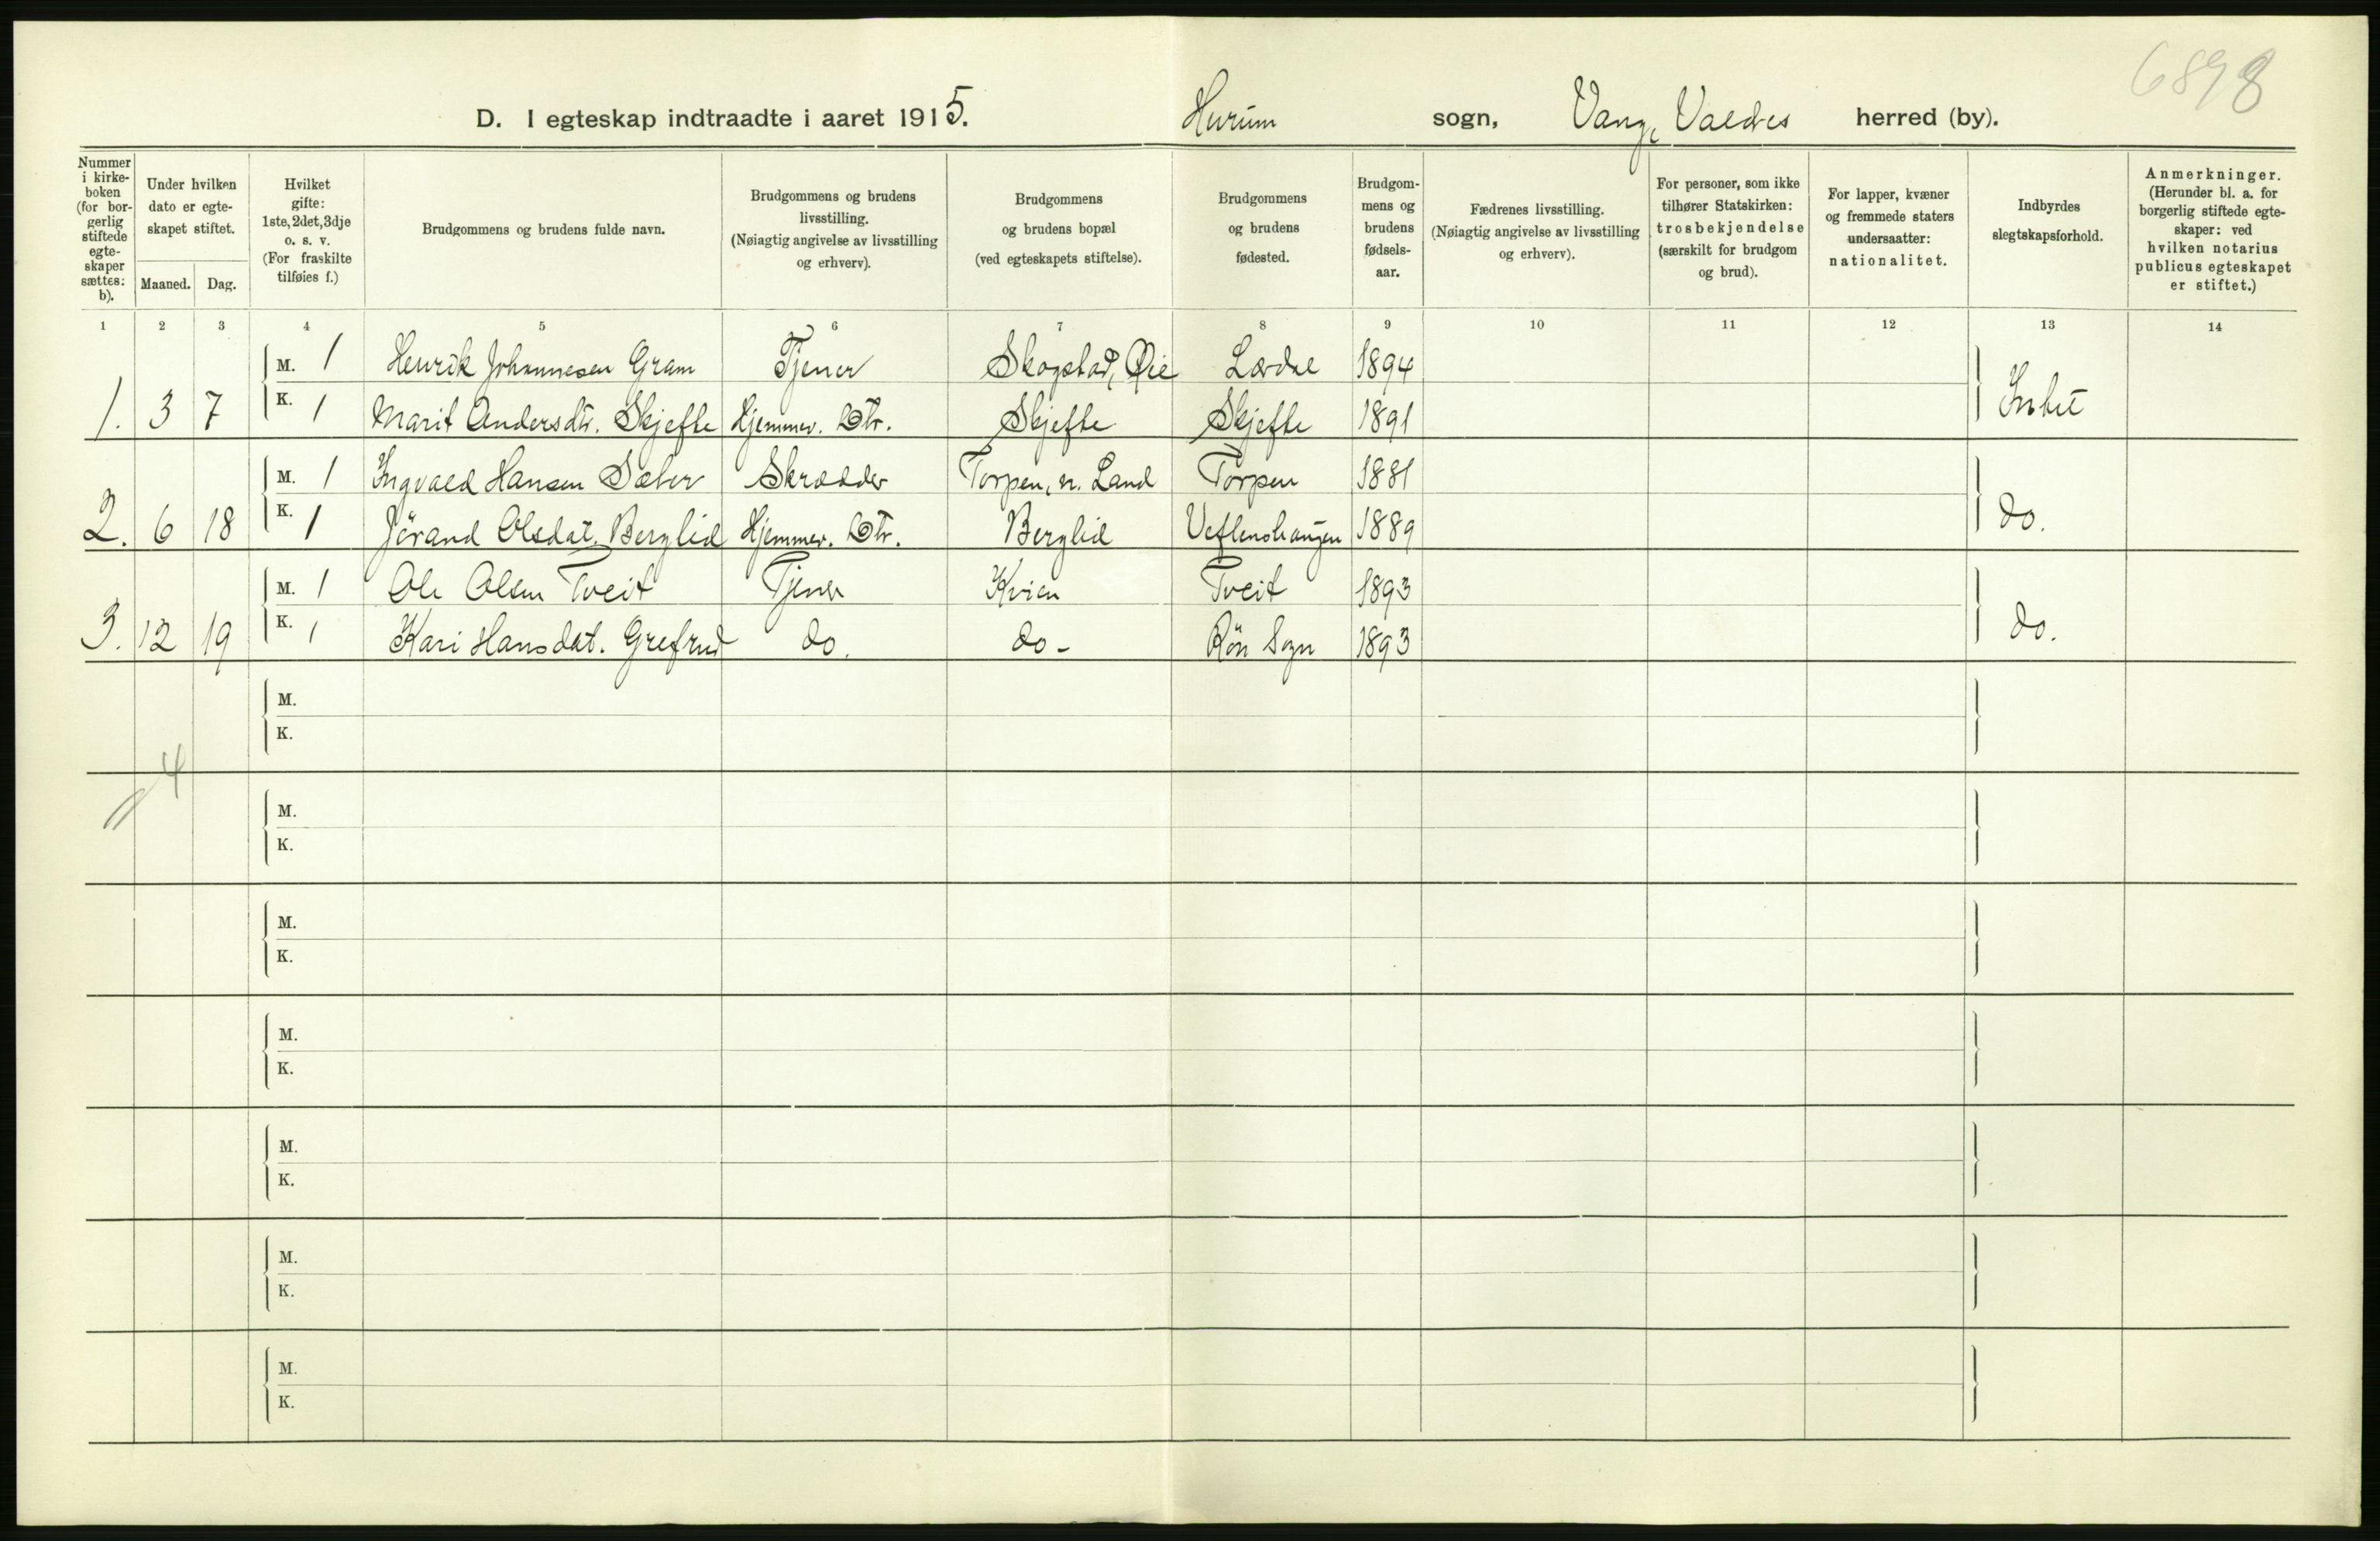 6898
D. I egteskap indtraadte i aaret 1915. Hurum sogn, Vang, Valdres herred (by).
Nummer i kirke- boken (for bor- gerlig stiftede egte- skaper sættes: b).
Under hvilken dato er egte- skapet stiftet.
Maaned. Dag.
Hvilket gifte: 1ste, 2det, 3dje o. s. v. (For fraskilte tilføies f.)
Brudgommens og brudens fulde navn.
Brudgommens og brudens livsstilling. (Nøiagtig angivelse av livsstilling og erhverv).
Brudgommens og brudens bopæl (ved egteskapets stiftelse).
Brudgommens og brudens fødested.
Brudgom- mens og brudens fødsels- aar.
Fædrenes livsstilling. (Nøiagtig angivelse av livsstilling og erhverv).
For personer, som ikke tilhører Statskirken: trosbekjendelse (særskilt for brudgom og brud).
For lapper, kvæner og fremmede staters undersaatter: nationalitet.
Indbyrdes slegtskapsforhold.
Anmerkninger. (Herunder bl. a. for borgerlig stiftede egte- skaper: ved hvilken notarius publicus egteskapet er stiftet.)
1 2 3 4 5 6 7 8 9 10 11 12 13 14
M. 1 Henrik Johannesen Gram Tjener Skogstad, Øie Lærdal 1894
1. 3 7 K. 1 Marit Andersdtr. Skjefte Hjemmev. Dtr. Skjefte Skjefte 1891 Intet
M. 1 Ingvald Hansen Sæter Skrædder Torpen, n. Land Torpen 1881
2. 6 18 K. 1 Jörand Olsdat. Berglid Hjemmev. Dtr. Berglid 1889 do.
M. 1 Ole Olsen Tveit Tjener Kvien Tveit 1893
3. 12 19 K. 1 Kari Hansdat. Grefrud do. do - Rön Sogn 1893 do.
M.
K.
4
M.
K.
M.
K.
M.
K.
M.
K.
M.
K.
M.
K.